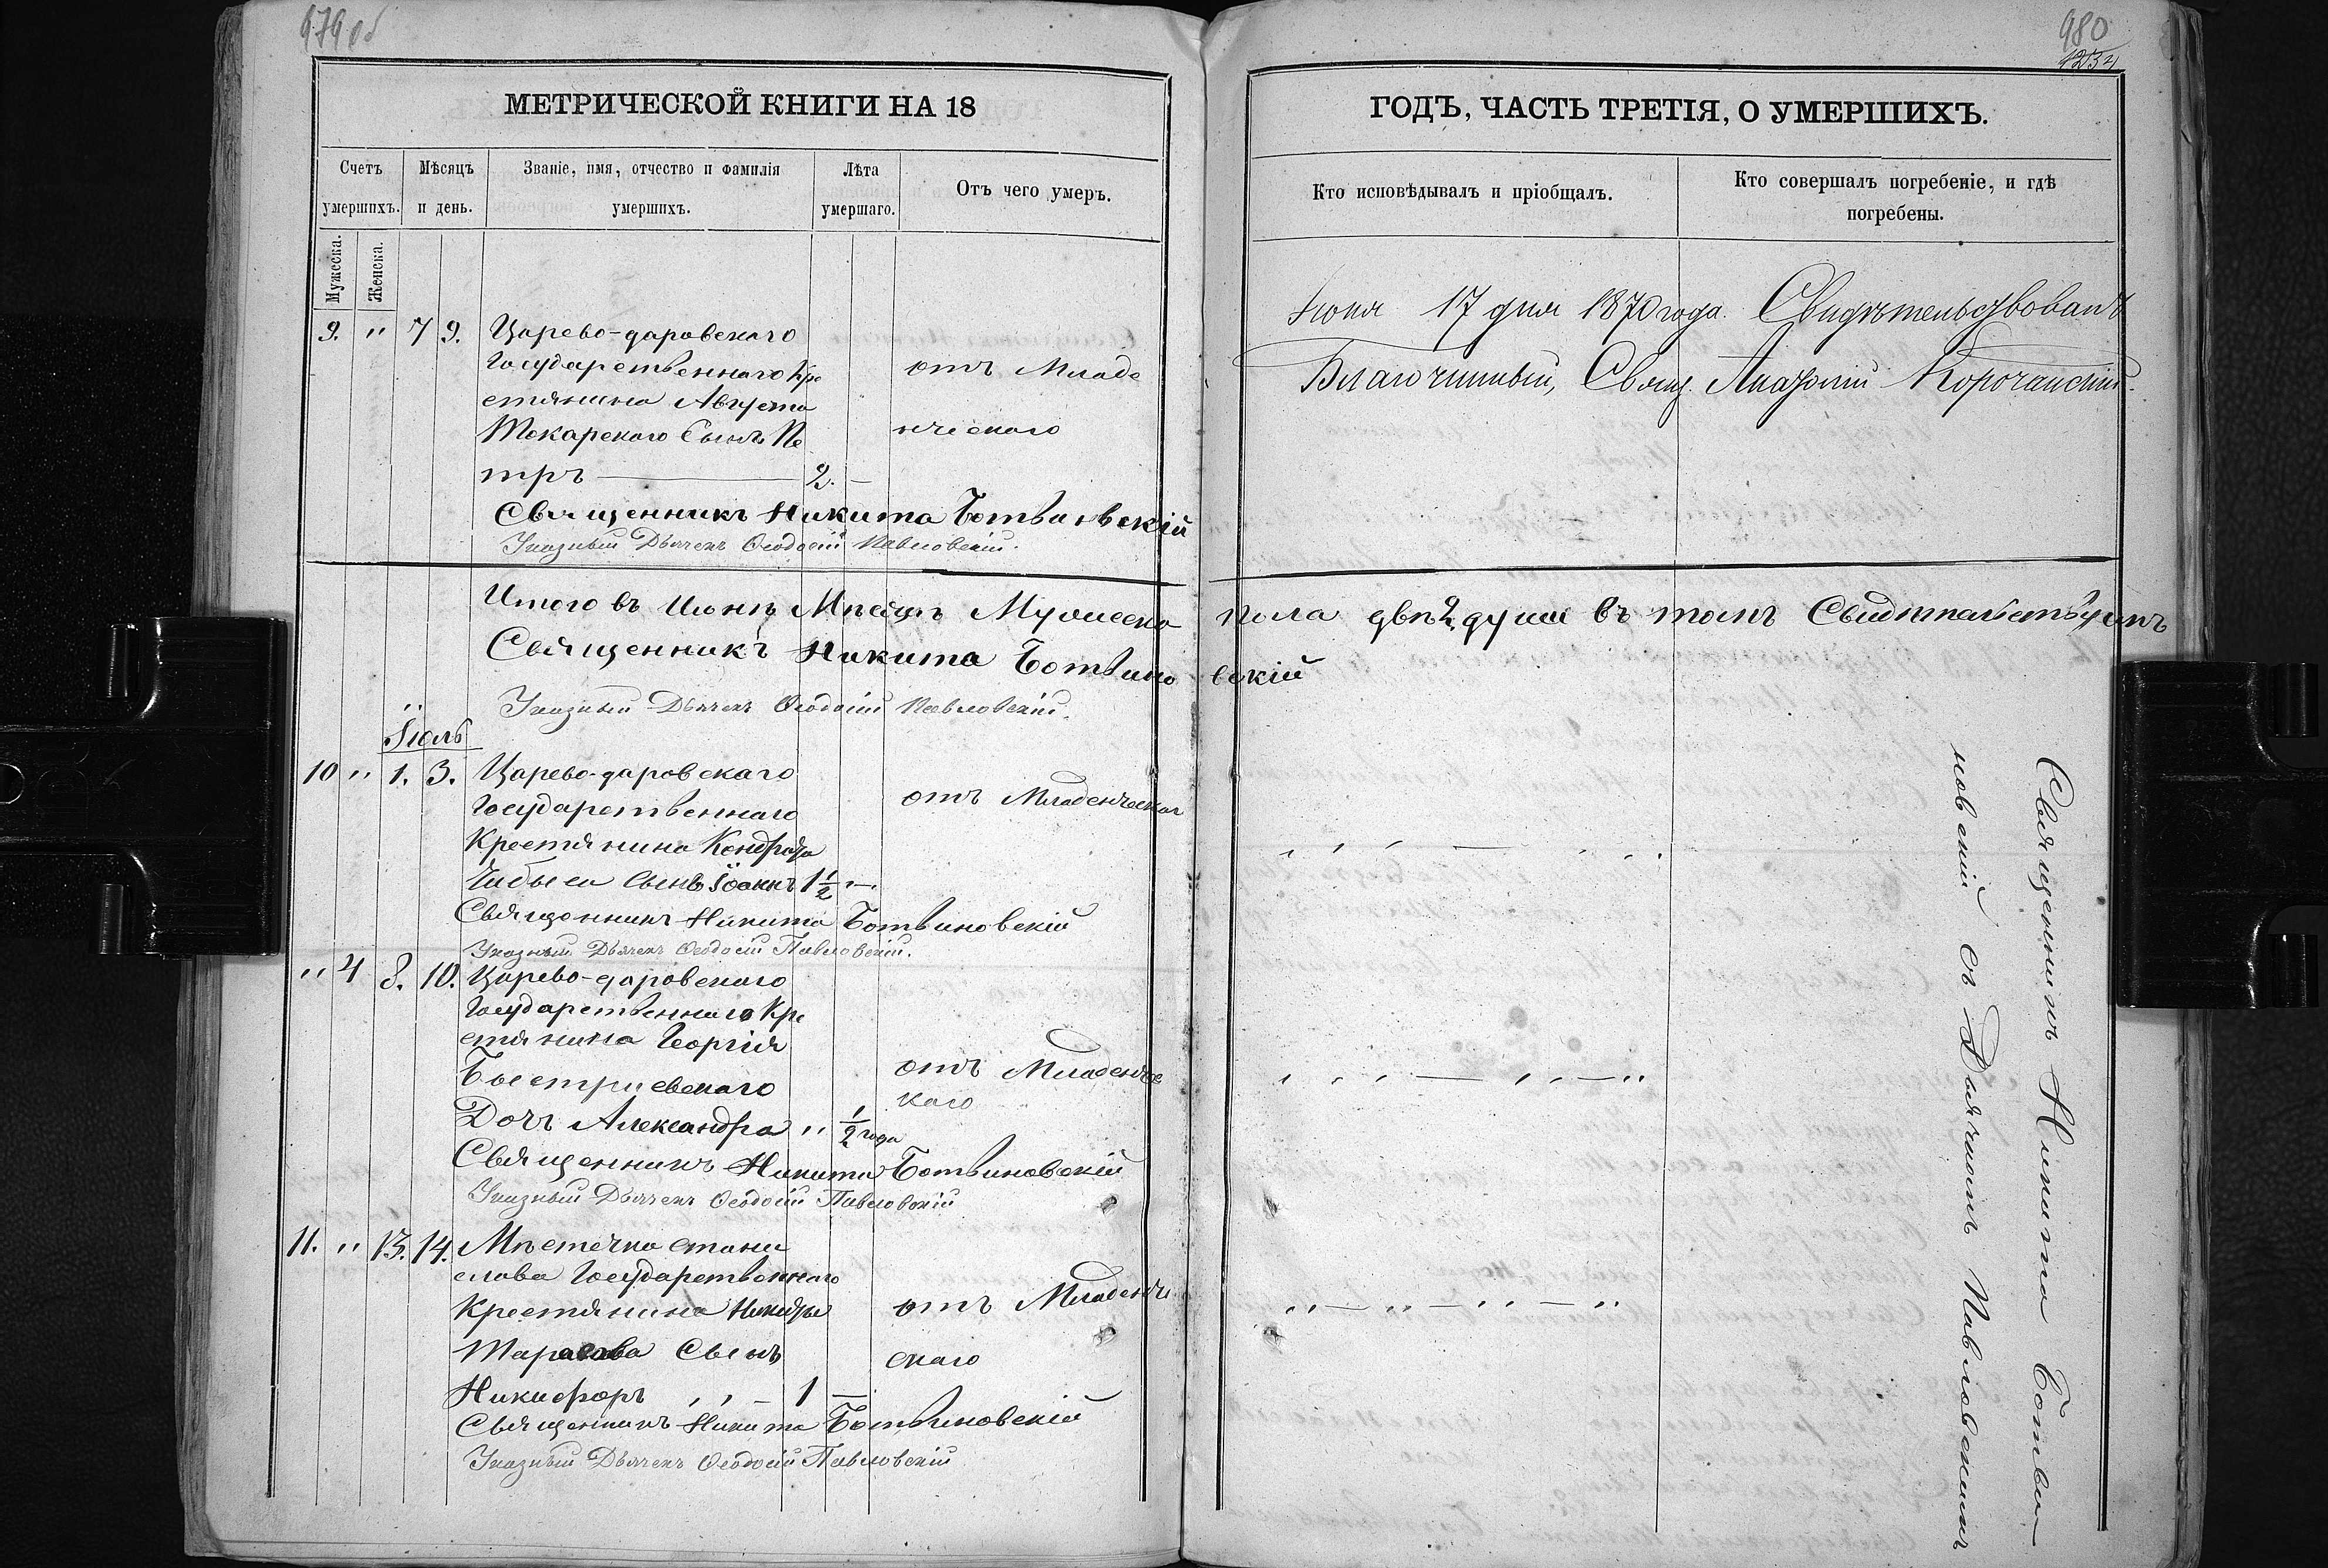 979 об
МЕТРИЧЕСКОЙ КНИГИ НА 18
Счетъ умершихъ.
Мѣсяцъ и день.
Званіе, имя, отчество и фамилія умершихъ.
Лѣта умершаго.
Отъ чего умеръ.
Мужеска.
Женска.
9. " 7 9. Царево-даровскаго
Государственнаго Кре
стянина Августа
отъ Младе
Токарскаго Сынъ Пе
нческаго
тръ — 2. —
Священникъ Никита Ботвиновскій
Указный Дьячекъ Ѳеодосій Павловскій.
Итого въ Июнѣ Мѣсяцѣ Мужеска
Священникъ Никита Ботвино
Указный Дьячекъ Ѳеодосій Павловскій.
Іюль
10 " 1. 3. Царево-даровскаго
Государственнаго
отъ Младенческаг
Крестянина Кондрата
Чибыса Сынъ Іоаннъ 1 1/2 "—
Священникъ Никита Ботвиновскій
Указный Дьячекъ Ѳеодосій Павловскій.
" 4 8. 10. Царево-даровскаго
Государственнаго Кре
стянина Георгія
Быстриевскаго
отъ Младенче
каго
Дочь Александра " 1/2 года
Священникъ Никита Ботвиновскій
Указный Дьячекъ Ѳеодосій Павловскій
11. " 13. 14. Мѣстечка стани
слава Государственнаго
Крестянина Никиты
отъ Младенче
Тарасова Сынъ
скаго
Никифоръ " — 1 —
Священникъ Никита Ботвиновскій
Указный Дьячекъ Ѳеодосій Павловскій
980
ГОДЪ, ЧАСТЬ ТРЕТІЯ, О УМЕРШИХЪ.
Кто исповѣдывалъ и пріобщалъ.
Кто совершалъ погребеніе, и гдѣ погребены.
Июня 17 дня 1870 года. Свидѣтельствовалъ
Благочинный, Свящ. Анатолій Корочанскій.
пола двѣ 2 души въ томъ Свидѣтельствуемъ
вскій
Священникъ Никита Ботви—
новскій съ Дьячкомъ Павловскимъ